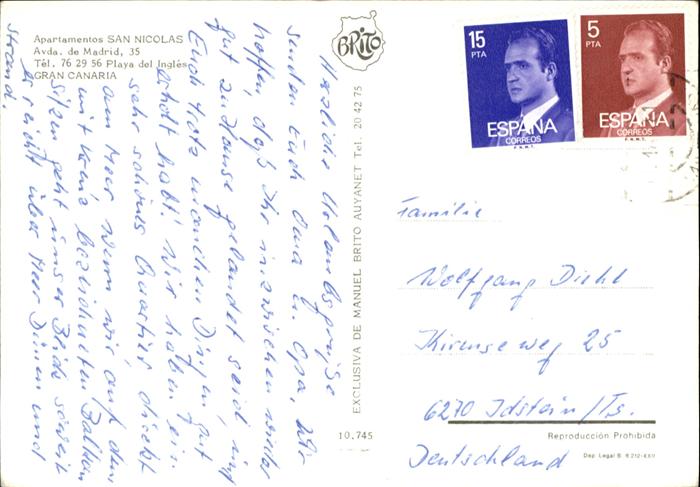 Apartamentos SAN NICOLAS
Avda. de Madrid, 35
Tél. 76 29 56 Playa del Inglés
GRAN CANARIA
BRITO
Herzliche Urlaubsgrüße
senden Euch Oma u. Opa, wir
hoffen, daß Ihr inzwischen wieder
gut zu Hause gelandet seid und
Euch trotz manchen Dingen gut
erholt habt! Wir haben ein
sehr schönes Quartier direkt
am Meer wenn wir auf dem
mit Kreuz bezeichneten Balkon
sitzen geht unser Blick soweit
es reicht über Meer Dünen und
Strand.
EXCLUSIVA DE MANUEL BRITO AUYANET Tel. 20 42 75
10.745
15
PTA
ESPAÑA
CORREOS
F.N.M.T.
5
PTA
ESPAÑA
CORREOS
F.N.M.T.
Familie
Wolfgang Diehl
Weg 25
6270 Idstein/Ts.
Deutschland
Reproducción Prohibida
Dep. Legal B. 6.212-XXII